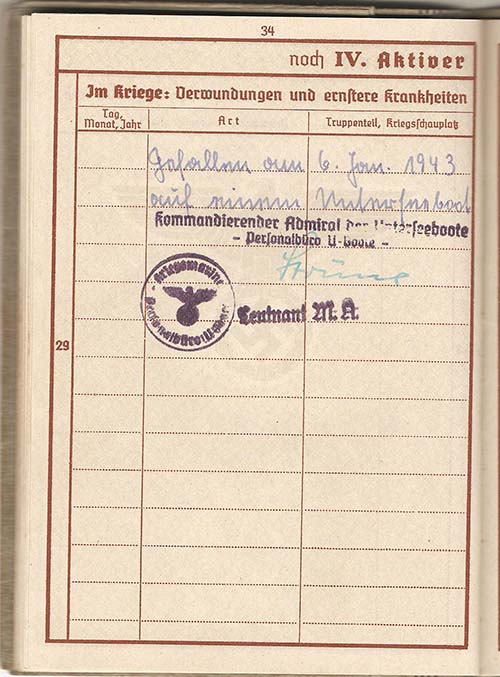 34
noch IV. Aktiver
Im Kriege: Verwundungen und ernstere Krankheiten
Tag, Monat, Jahr
Art
Truppenteil, Kriegsschauplatz
Gefallen am 6. Jan. 1943
auf einem Unterseeboot
Kommandierender Admiral der Unterseeboote
- Personalbüro U-Boote -
Kriegsmarine
Personalbüro U-Boote
Leutnant M.A.
29